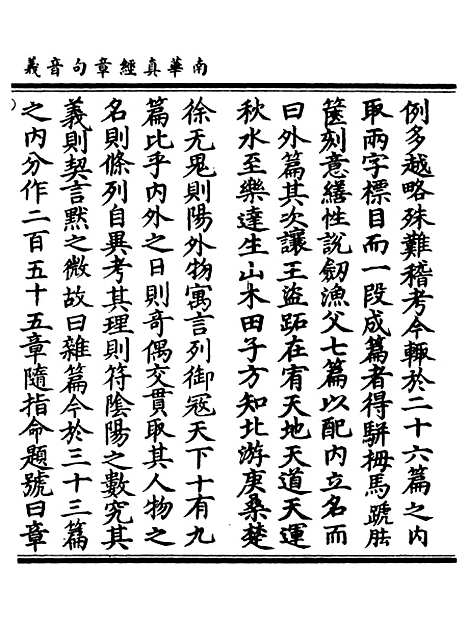 南華真經章句音義
例多越略殊難稽考今輙於二十六篇之内
取兩字標目而一段成篇者得駢拇馬蹏胠
篋刻意繕性說劒漁父七篇以配内立名而
曰外篇其次讓王盗跖在宥天地天道天運
秋水至樂達生山木田子方知北游庚桑楚
徐无鬼則陽外物寓言列御寇天下十有九
篇比乎内外之日則奇偶交貫取其人物之
名則條列自異考其理則符陰陽之數究其
義則契言默之微故曰雜篇今於三十三篇
之内分作二百五十五章隨指命題號曰章